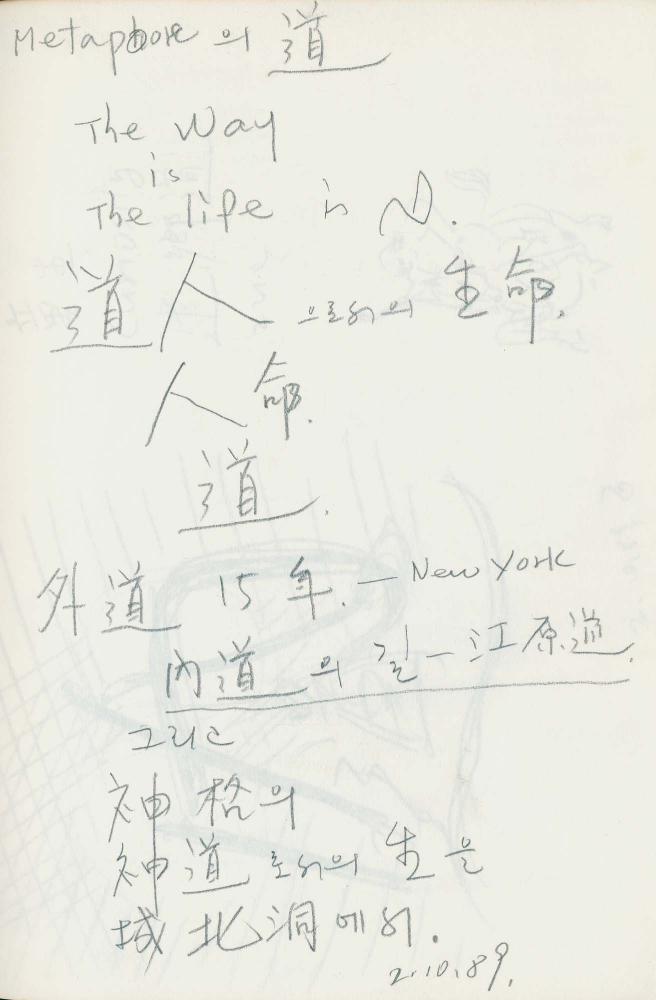 Metaphore의 道
The Way
is
The life in N.
道人으로서의 生命.
人命.
道.
外道 15年. — New York
內道의 길 — 江原道.
그리고
神格의
神道로서의 生을
城北洞에서.
2.10.89.